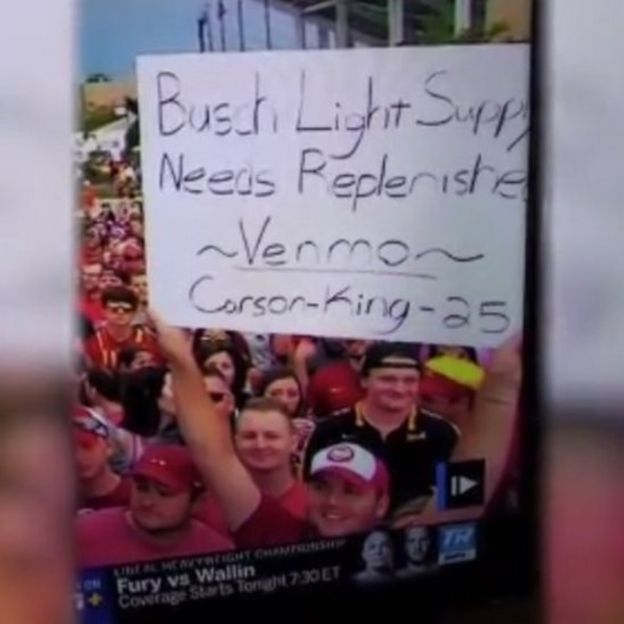 Busch Light Supply
Needs Replenished
~Venmo~
Carson-King-25
LINEAL HEAVYWEIGHT CHAMPIONSHIP
Fury vs Wallin
Coverage Starts Tonight 7:30 ET
ON
+
TR